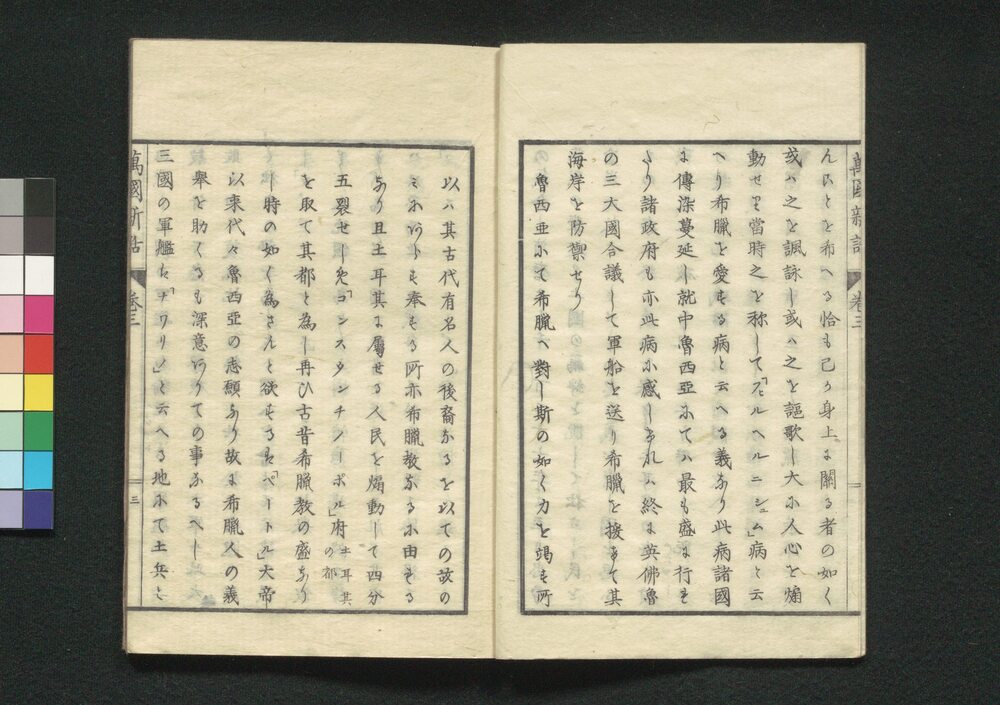 んことを布へる恰も己か身上に關る者の如く
或ハ之を諷詠し或ハ之を謳歌し大に人心を煽
動せり當時之を称して「ヒルヘルニシュム」病と云
へり布臘を愛する病と云へる義なり此病諸國
に傳染蔓延し就中魯西亞にてハ最も盛に行は
たり諸政府も亦此病に感しけれハ終に英佛魯
の三大國合議して軍船を送り希臘を援けて其
海岸を防禦せり
魯西亜にて希臘へ對し斯の如く力を竭す所
以ハ其古代有名人の後裔なるを以ての故の
みにあらす奉する所亦布臘教なるに由する
なり且土耳其に屬せる人民を煽動して四分
五裂せしめ「コンスタンチノーポル」府土耳其の都
を取て其都と為し再ひ古昔希臘教の盛なり
し時の如く為さんと欲するは「ペートル」大帝
以来代々魯西亞の志願なり故に希臘人の義
舉を助くるも深意ありての事なるへし
三國の軍艦は「ナワリノ」と云へる地にて土兵と
萬國新話 卷三 二
萬國新話 卷三 三